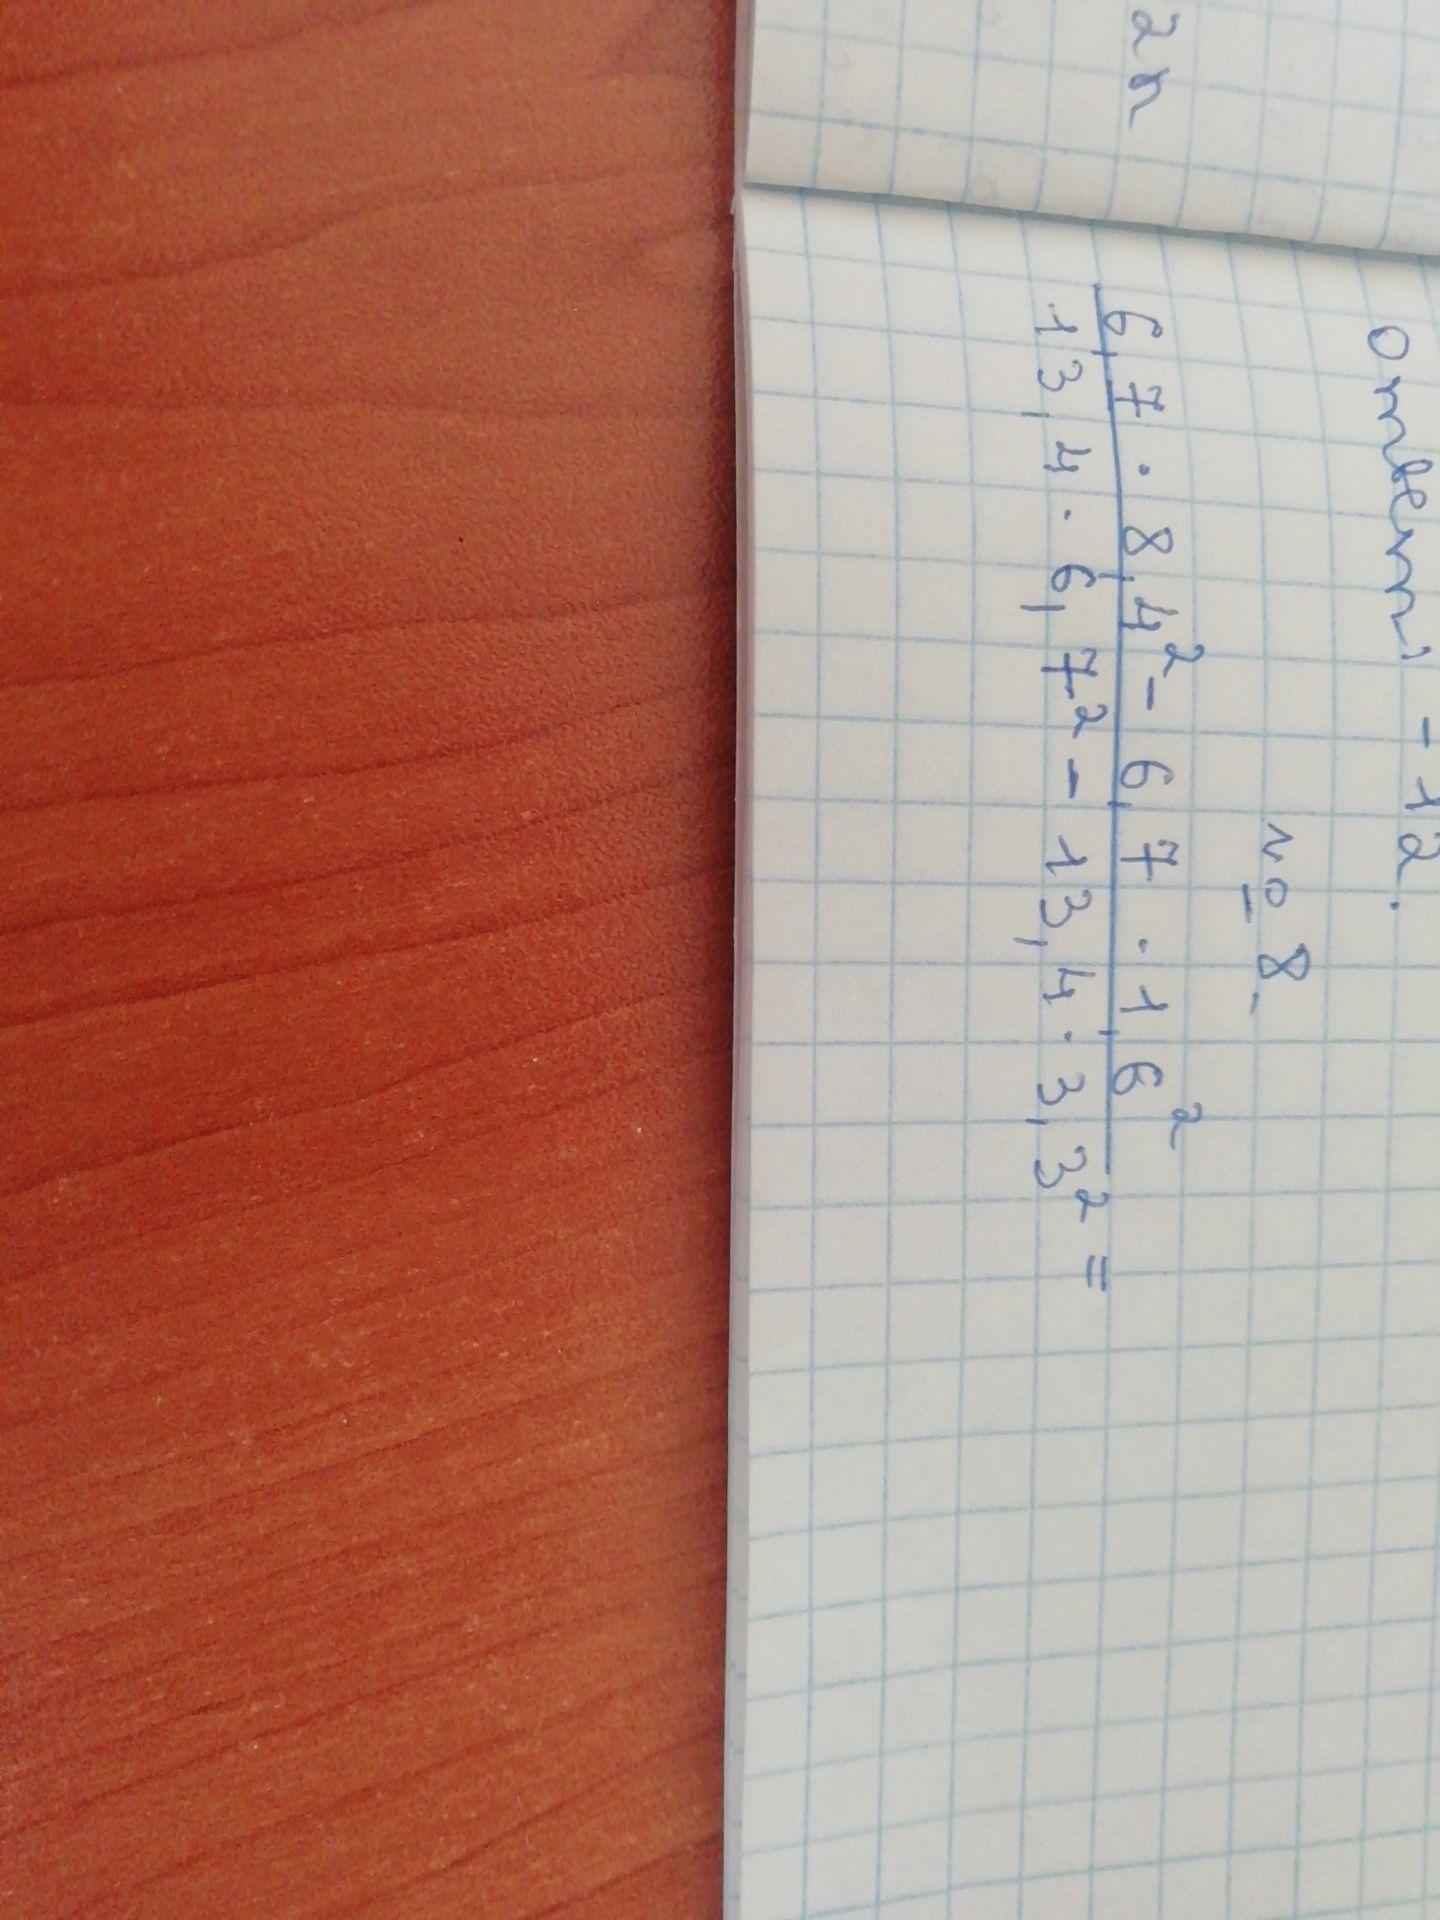 2n
Ответ: -12.
№8.
6,7 · 8,4² - 6,7 · 1,6²
13,4 · 6,7² - 13,4 · 3,3² =